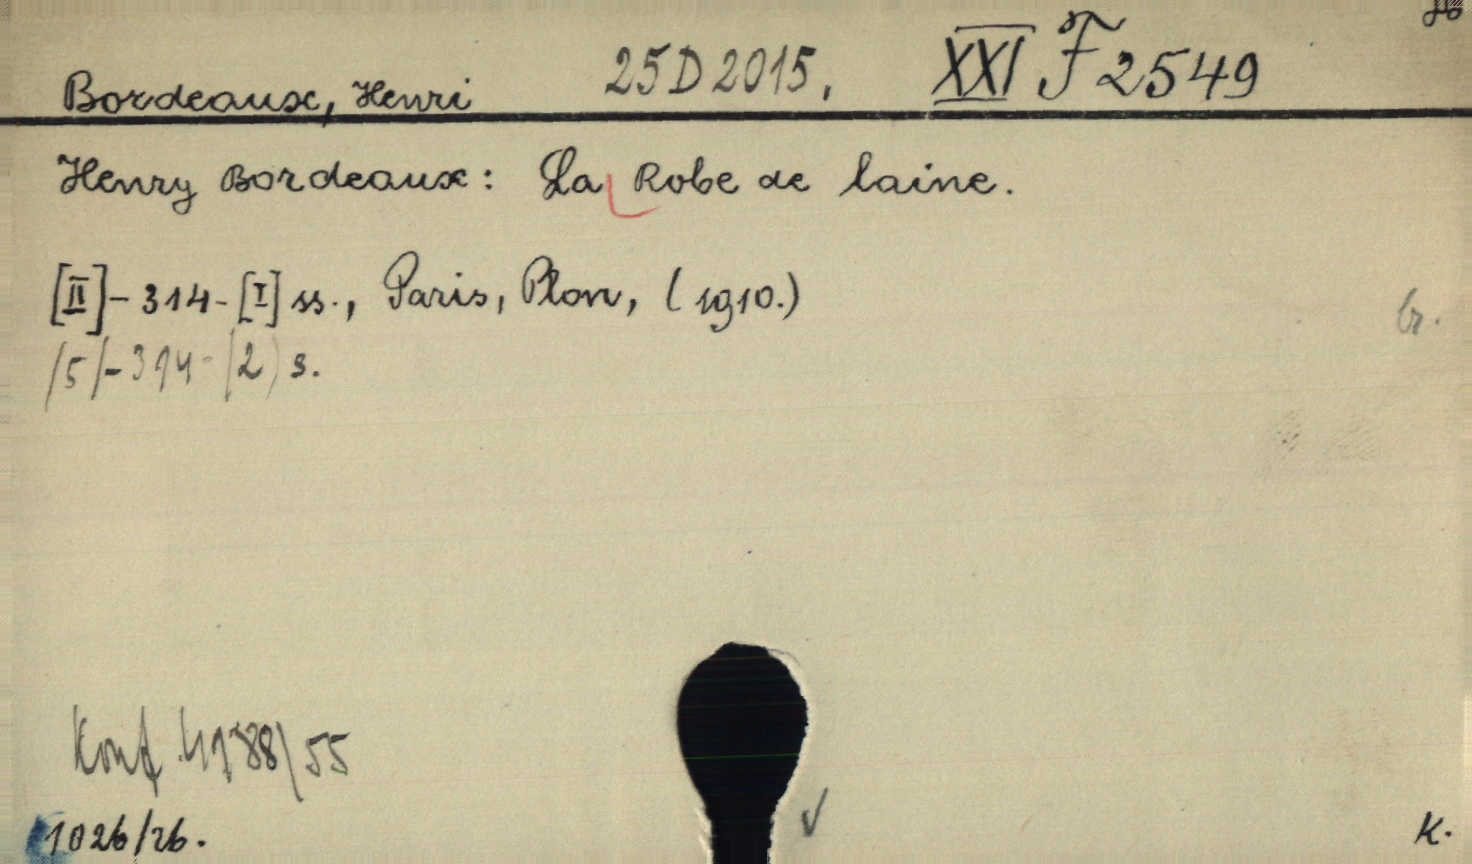 Bordeaux, Henri 25D2015, XXI F 2549
Henry Bordeaux: La Robe de laine.
[II]-314-[I] ss., Paris, Plon, (1910.)
br.
/5/-314-(2) s.
Konf. 4988/55
1026/26.
K.